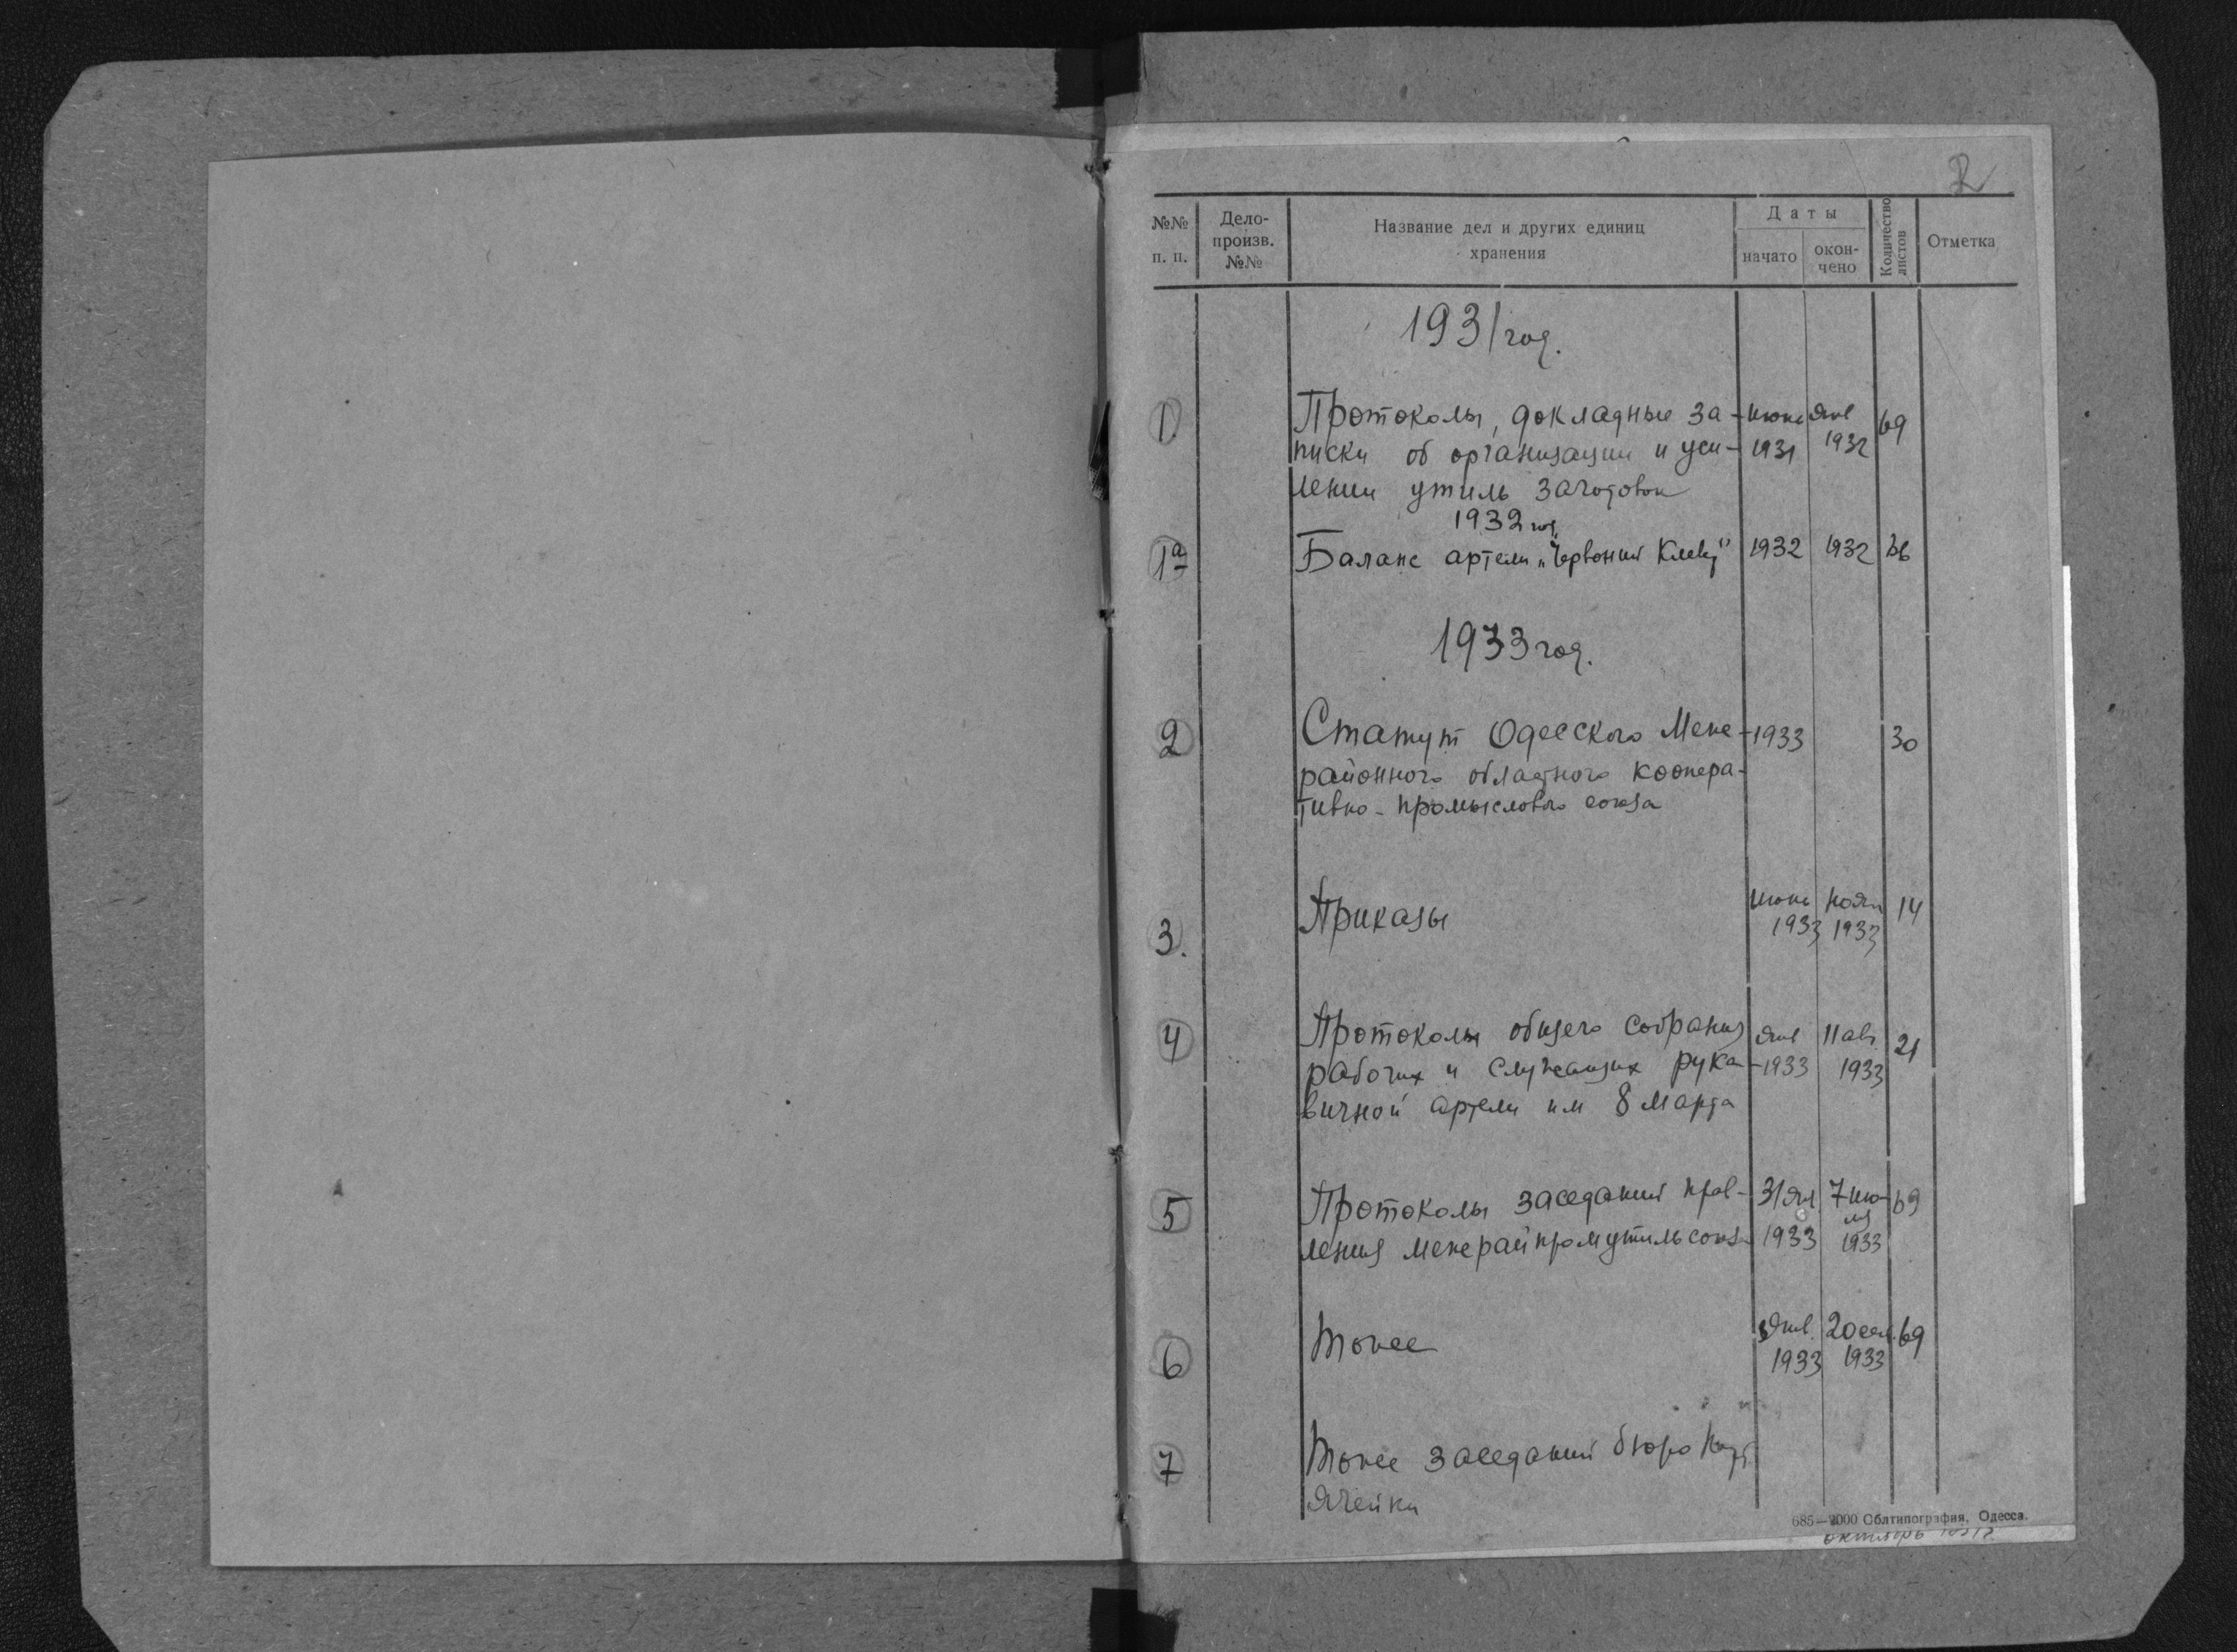 2
№№ п. п.
Дело-произв. №№
Название дел и других единиц хранения
Даты
начато
окон-чено
Количество листов
Отметка
1931 год.
1 Протоколы, докладные за- июнь янв 69
писки об организации и уси- 1931 1932
лении утиль заготовок
1932 год
1а Баланс артели „Червоний 1932 1932
1933 год.
2 Статут Одесского Меже- 1933 30
районного областного коопера-
тивно-промыслового союза
3. Приказы июнь нояб 14
1933 1933
4 Протоколы общего собрания янв 11 авг. 21
рабочих и служащих рука- 1933 1933
вичной артели им 8 марта
5 Протоколы заседаний прав- 31 янв 7 ию- 69
ля
ления межрайпромутильсоюз 1933 1933
6 Тоже янв. 20 сен. 69
1933 1933
7 Тоже заседаний бюро парт
ячейки
685—2000 Облтипография, Одесса.
октябрь